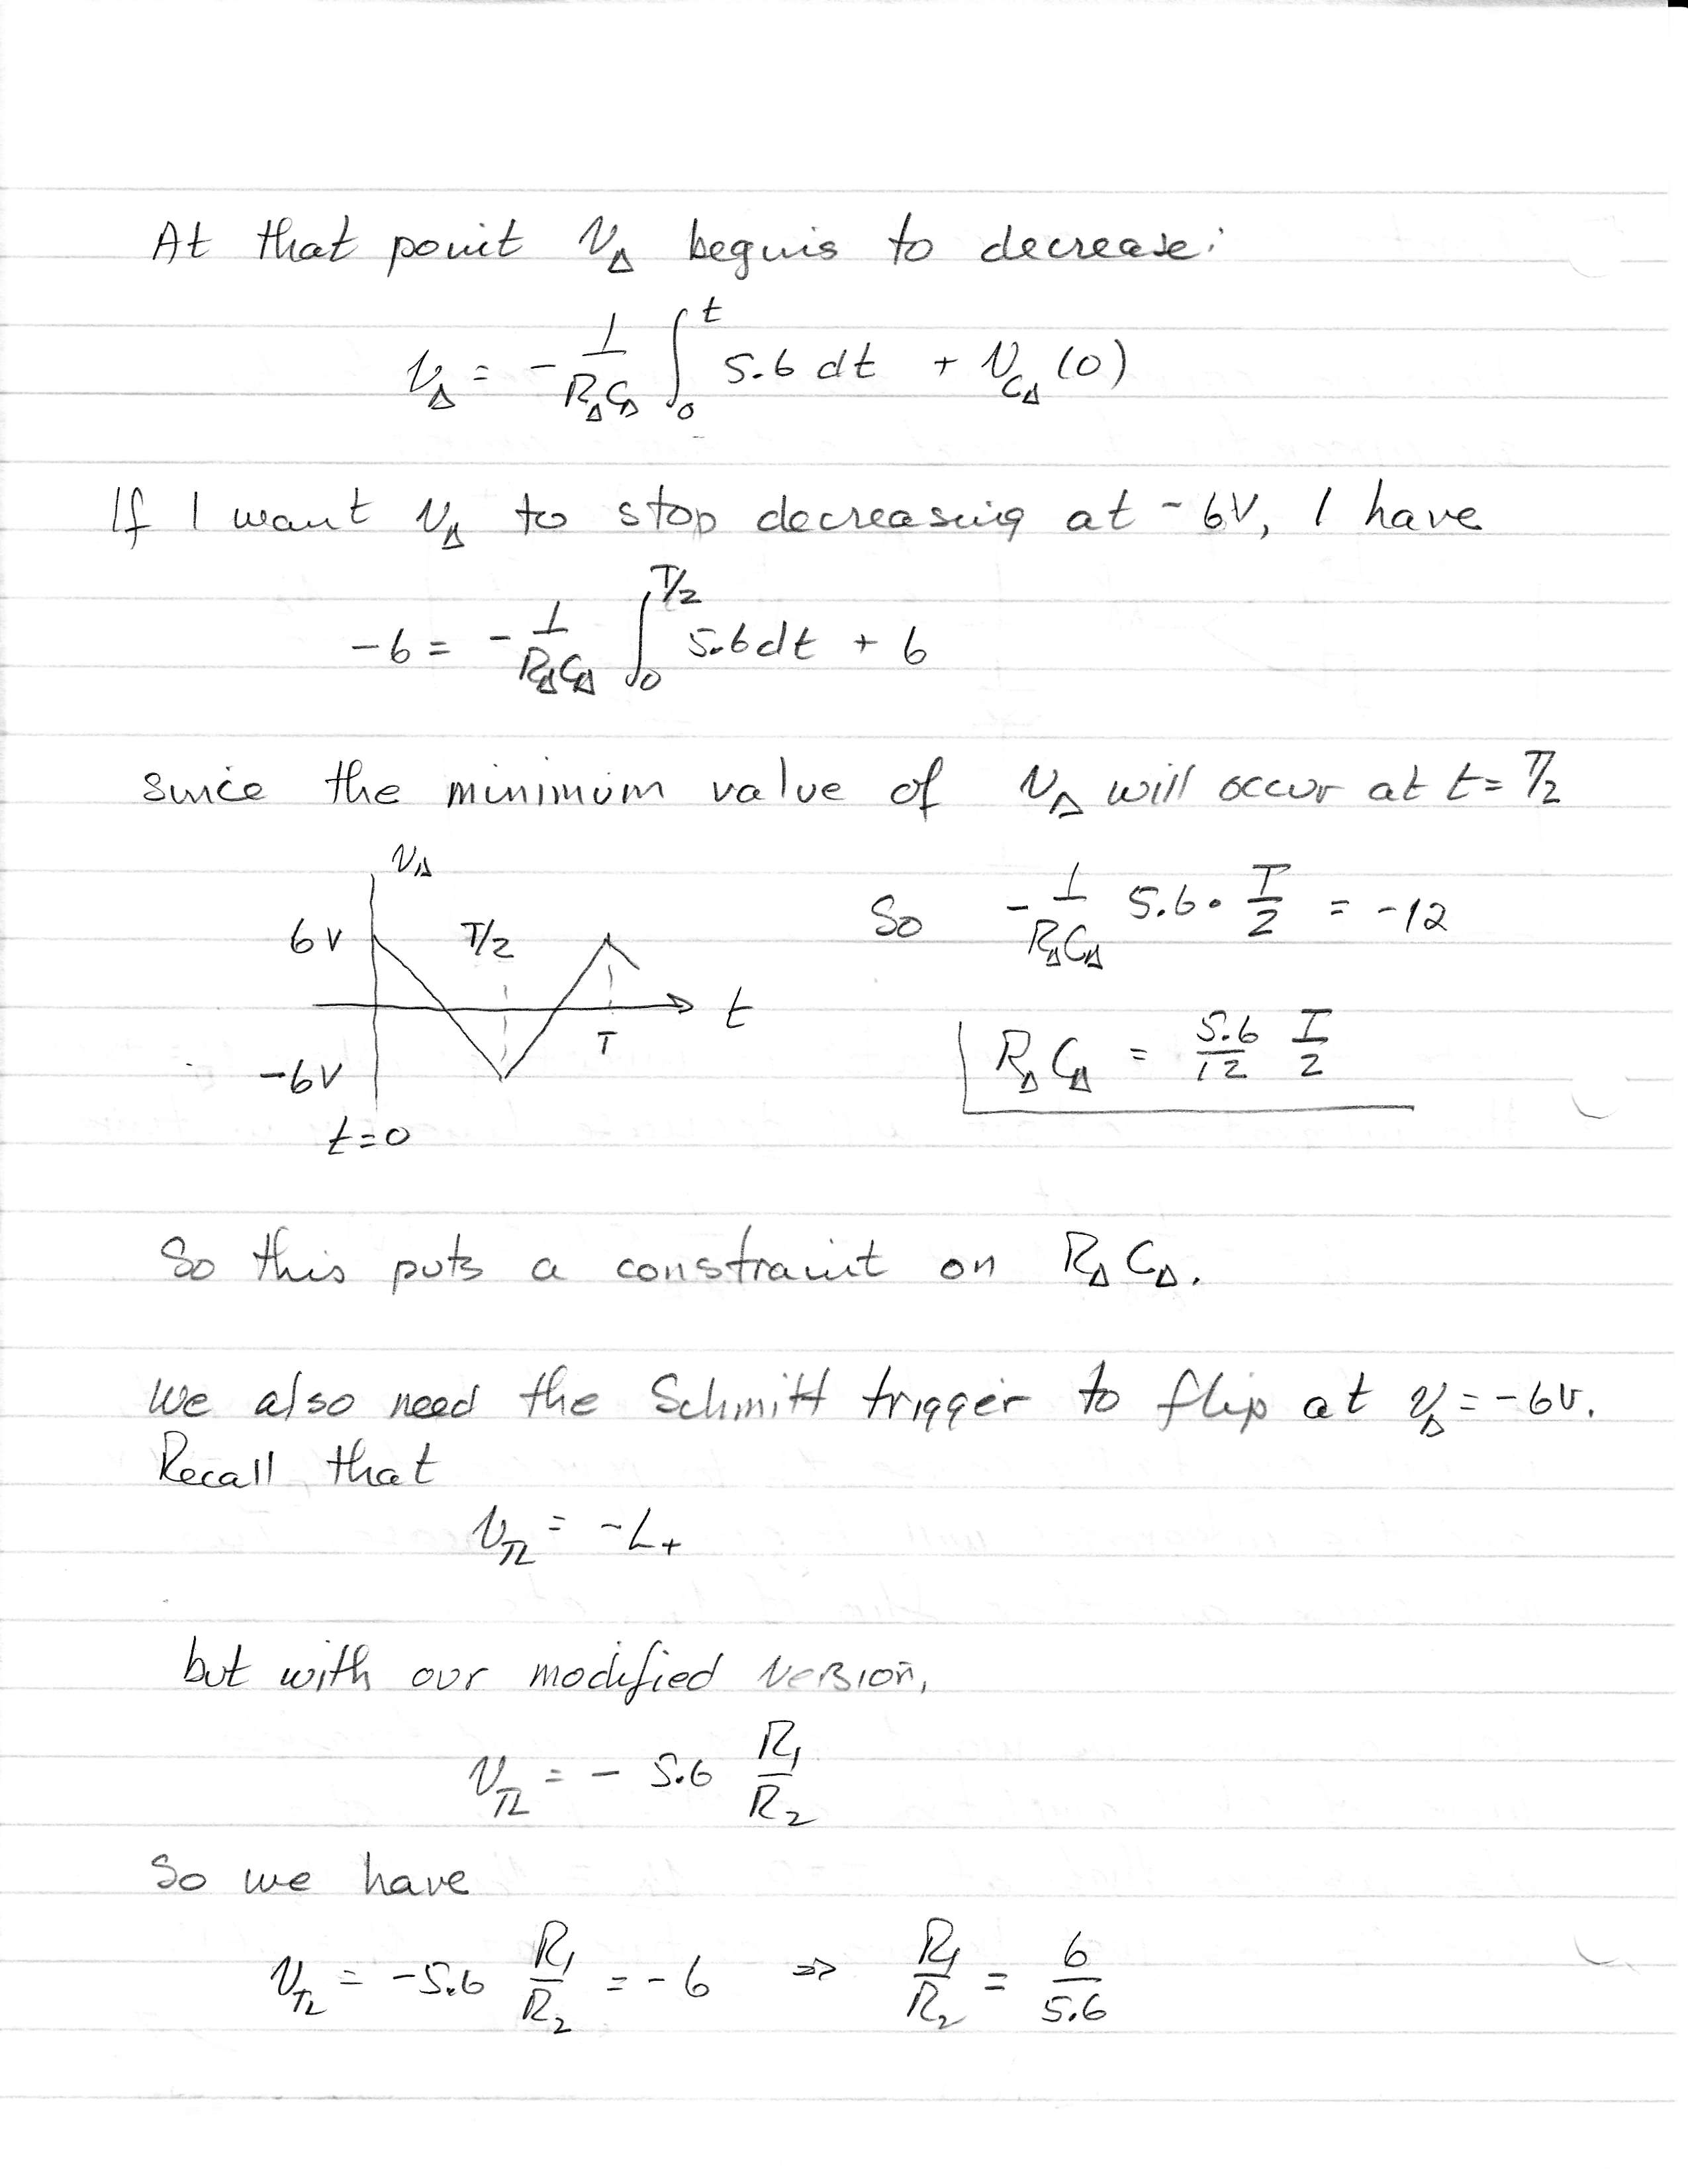 At that point v_Δ begins to decrease:
v_Δ = - 1/(R_Δ C_Δ) ∫_0^t 5.6 dt + v_{C_Δ}(0)
If I want v_Δ to stop decreasing at -6V, I have
-6 = - 1/(R_Δ C_Δ) ∫_0^{T/2} 5.6 dt + 6
since the minimum value of v_Δ will occur at t = T/2
v_Δ
6V T/2
t
T
-6V
t=0
So - 1/(R_Δ C_Δ) 5.6 · T/2 = -12
R_Δ C_Δ = 5.6/12 T/2
So this puts a constraint on R_Δ C_Δ.
We also need the Schmitt trigger to flip at v_Δ = -6V.
Recall that
v_TL = -L+
but with our modified version,
v_TL = - 5.6 R1/R2
So we have
v_TL = -5.6 R1/R2 = -6 ⇒ R1/R2 = 6/5.6